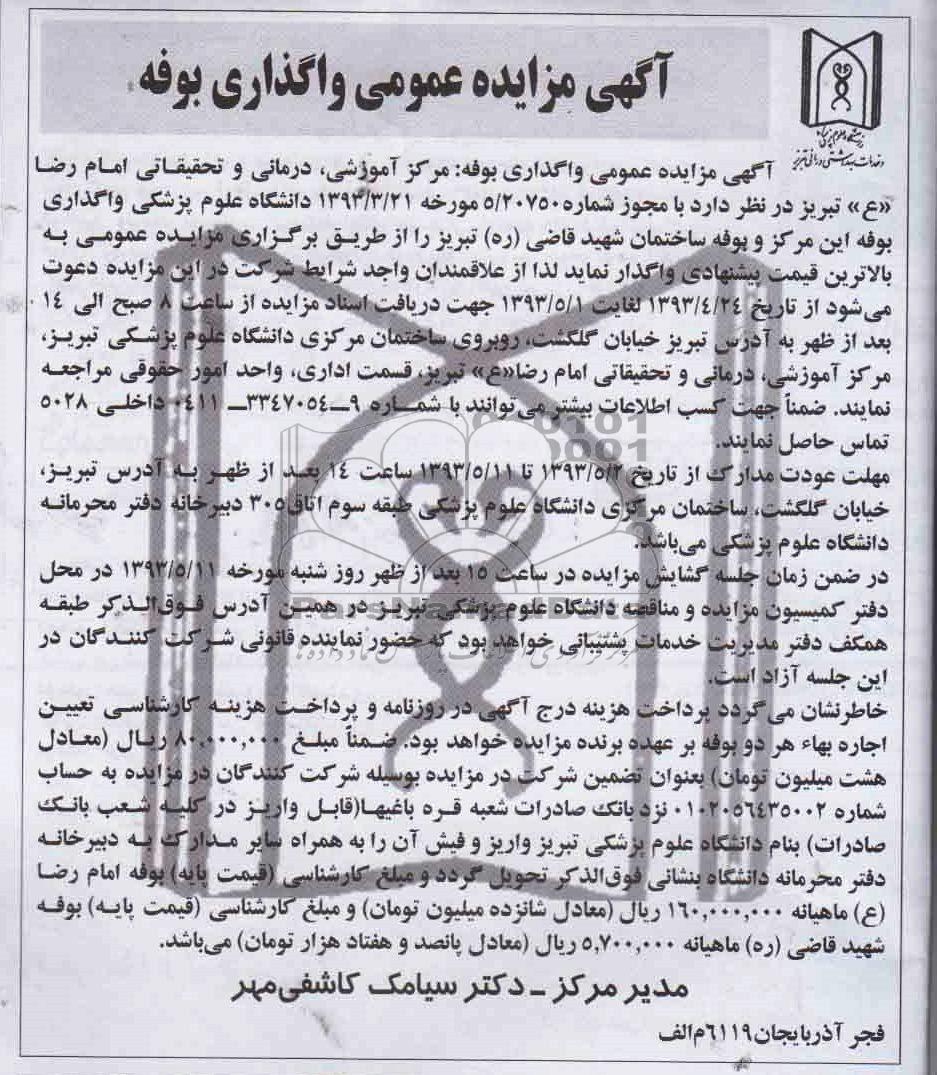 آگهی مزایده عمومی واگذاری بوفه
آگهی مزایده عمومی واگذاری بوفه: مرکز آموزشی، درمانی و تحقیقاتی امام رضا
«ع» تبریز در نظر دارد با مجوز شماره۵/۲۰۷۵۰ مورخه ۱۳۹۳/۳/۲۱ دانشگاه علوم پزشکی واگذاری
بوفه این مرکز و بوفه ساختمان شهید قاضی (ره) تبریز را از طریق برگزاری مزایده عمومی به
بالاترین قیمت پیشنهادی واگذار نماید لذا از علاقمندان واجد شرایط شرکت در این مزایده دعوت
می‌شود از تاریخ ۱۳۹۳/۴/۲۴ لغایت ۱۳۹۳/۵/۱ جهت دریافت اسناد مزایده از ساعت ۸ صبح الی ۱۴
بعد از ظهر به آدرس تبریز خیابان گلگشت، روبروی ساختمان مرکزی دانشگاه علوم پزشکی تبریز،
مرکز آموزشی، درمانی و تحقیقاتی امام رضا«ع» تبریز، قسمت اداری، واحد امور حقوقی مراجعه
نمایند. ضمناً جهت کسب اطلاعات بیشتر می‌توانند با شماره ۹ــ۳۳۴۷۰۵۴ــ ۰۴۱۱ داخلی ۵۰۲۸
تماس حاصل نمایند.
مهلت عودت مدارک از تاریخ ۱۳۹۳/۵/۲ تا ۱۳۹۳/۵/۱۱ ساعت ۱۴ بعد از ظهر به آدرس تبریز،
خیابان گلگشت، ساختمان مرکزی دانشگاه علوم پزشکی طبقه سوم اتاق۳۰۵ دبیرخانه دفتر محرمانه
دانشگاه علوم پزشکی می‌باشد.
در ضمن زمان جلسه گشایش مزایده در ساعت ۱۵ بعد از ظهر روز شنبه مورخه ۱۳۹۳/۵/۱۱ در محل
دفتر کمیسیون مزایده و مناقصه دانشگاه علوم پزشکی تبریز در همین آدرس فوق‌الذکر طبقه
همکف دفتر مدیریت خدمات پشتیبانی خواهد بود که حضور نماینده قانونی شرکت کنندگان در
این جلسه آزاد است.
خاطرنشان می‌گردد پرداخت هزینه درج آگهی در روزنامه و پرداخت هزینه کارشناسی تعیین
اجاره بهاء هر دو بوفه بر عهده برنده مزایده خواهد بود. ضمناً مبلغ ۸۰,۰۰۰,۰۰۰ ریال (معادل
هشت میلیون تومان) بعنوان تضمین شرکت در مزایده بوسیله شرکت کنندگان در مزایده به حساب
شماره ۰۱۰۲۰۵۶۴۳۵۰۰۲ نزد بانک صادرات شعبه قره باغیها(قابل واریز در کلیه شعب بانک
صادرات) بنام دانشگاه علوم پزشکی تبریز واریز و فیش آن را به همراه سایر مدارک به دبیرخانه
دفتر محرمانه دانشگاه بنشانی فوق‌الذکر تحویل گردد و مبلغ کارشناسی (قیمت پایه) بوفه امام رضا
(ع) ماهیانه ۱۶۰,۰۰۰,۰۰۰ ریال (معادل شانزده میلیون تومان) و مبلغ کارشناسی (قیمت پایه) بوفه
شهید قاضی (ره) ماهیانه ۵,۷۰۰,۰۰۰ ریال (معادل پانصد و هفتاد هزار تومان) می‌باشد.
مدیر مرکز ـ دکتر سیامک کاشفی‌مهر
فجر آذربایجان۶۱۱۹م‌الف
ParsNamadData